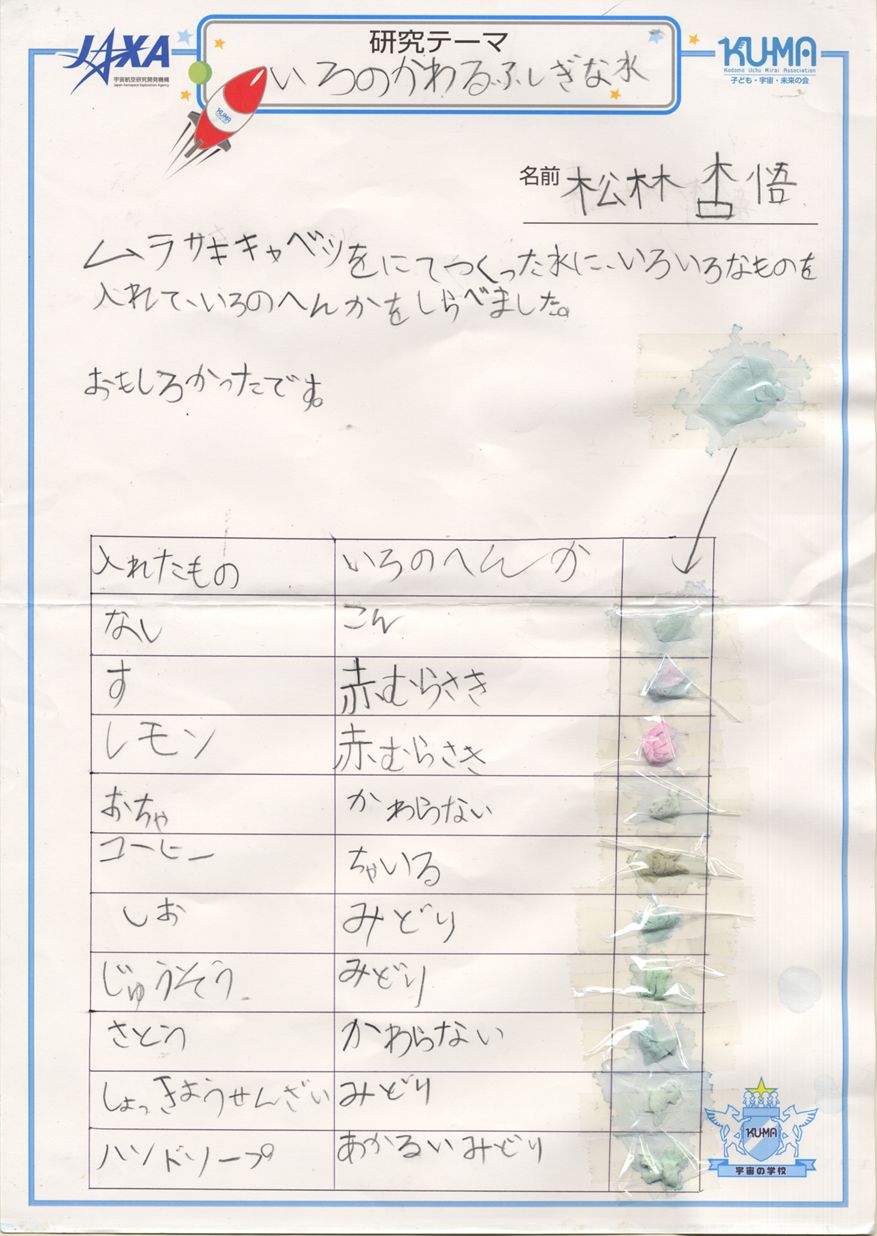 JAXA
宇宙航空研究開発機構
Japan Aerospace Exploration Agency
研究テーマ
いろのかわるふしぎな水
KU-MA
Kodomo Uchu Mirai Association
子ども・宇宙・未来の会
KU-MA
名前 松林 杏悟
ムラサキキャベツをにてつくった水に、いろいろなものを
入れて、いろのへんかをしらべました。
おもしろかったです。
入れたもの いろのへんか
なし こん
す 赤むらさき
レモン 赤むらさき
おちゃ かわらない
コーヒー ちゃいろ
しお みどり
じゅうそう みどり
さとう かわらない
しょっきようせんざい みどり
ハンドソープ あかるいみどり
KU-MA
宇宙の学校